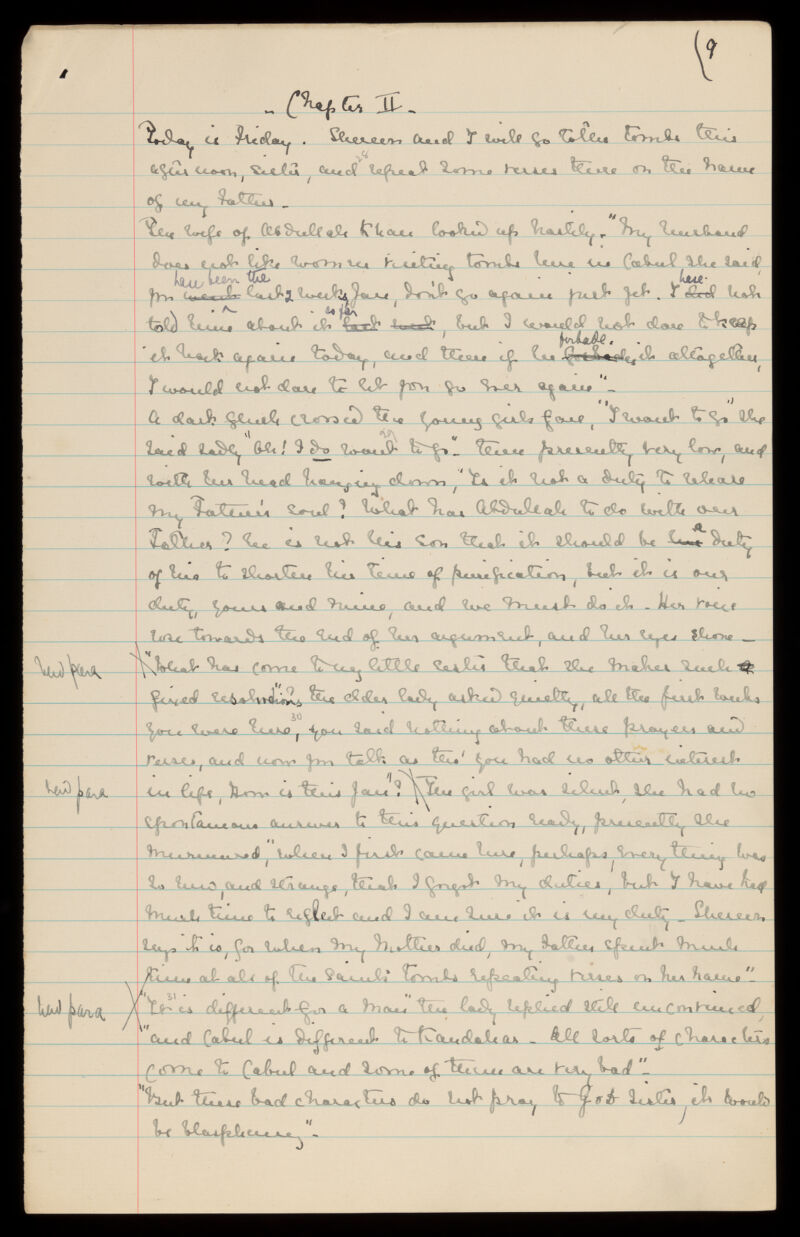 9
- Chapter II -
Today is Friday. Shereen and I will go to the tombs this
afternoon, sister, and repeat some verses there on the name
of my Father -
The wife of Abdullah Khan looked up hastily. "My husband
does not like women visiting tombs here in Cabul she said,
have been the have
you went last 2 weeks Jan, don't go again just yet. I did not
so far
told him about it last week, but I would not dare to keep
forbade.
it back again today, and then if he forbade it altogether,
I would not dare to let you go ever again" -
A dark flush crossed the young girls face, "I want to go" she
said sadly "Oh! I do want to go" - then presently, very low, and
with her head hanging down, "Is it not a duty to release
my Father's soul? What has Abdullah to do with our
Father? he is not his son that it should be a duty
of his to shorten his time of purification, but it is our
duty, yours and mine, and we must do it - Her voice
rose towards the end of her argument, and her eyes shone -
New para "What has come to my little sister that she makes such
fixed resolutions"? the elder lady asked quietly, all the first weeks
you were here, 30 you said nothing about these prayers and
verses, and now you talk as tho' you had no other interest
new para in life, How is this Jan"? The girl was silent, she had no
spontaneous answer to this question ready, presently she
murmured, "when I first came here, perhaps, everything was
so new, and strange, that I forgot my duties, but I have had
much time to reflect and I am sure it is my duty - Shereen
says it is, for when my Mother died, my Father spent much
time at all of the Saints tombs repeating verses on her name" -
new para "It 31 is different for a man" the lady replied still unconvinced,
"and Cabul is different to Kandahar - All sorts of characters
come to Cabul and some of them are very bad" -
"But these bad characters do not pray to God Sister, it would
be blasphemy" -